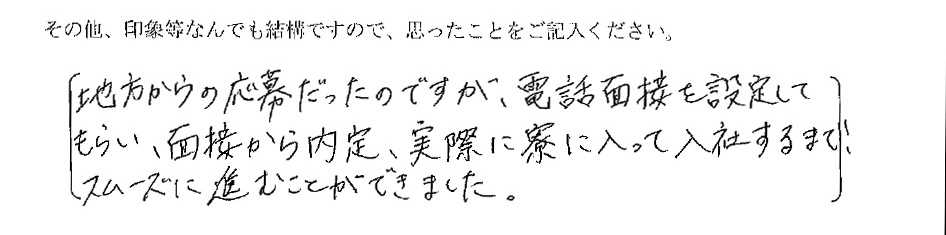 その他、印象等なんでも結構ですので、思ったことをご記入ください。
地方からの応募だったのですが、電話面接を設定して
もらい、面接から内定、実際に寮に入って入社するまで!
スムーズに進むことができました。